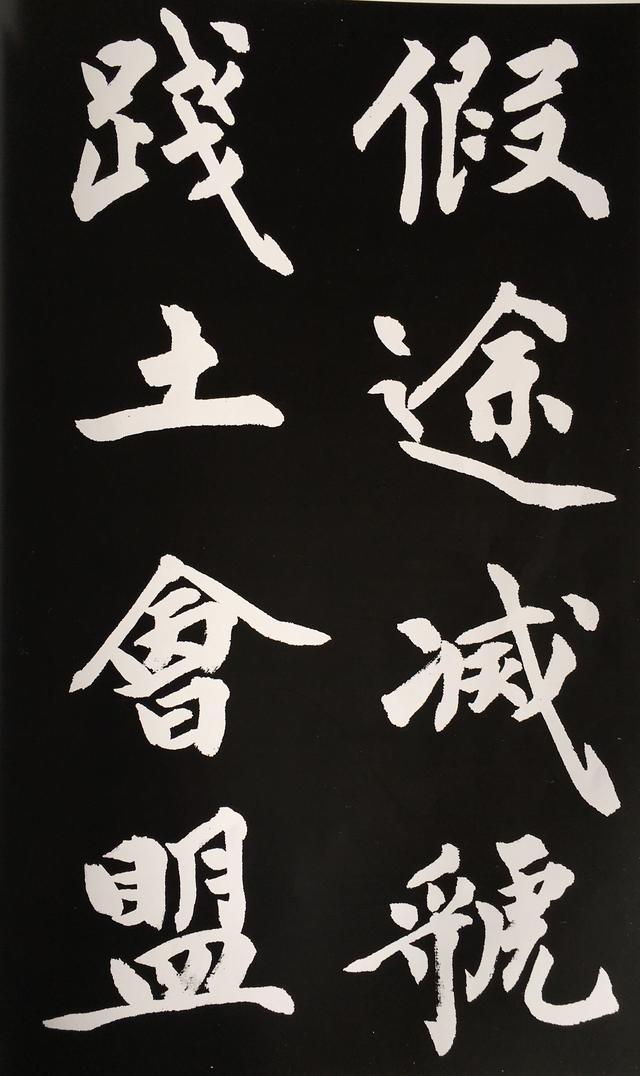 假途滅虢
踐土會盟